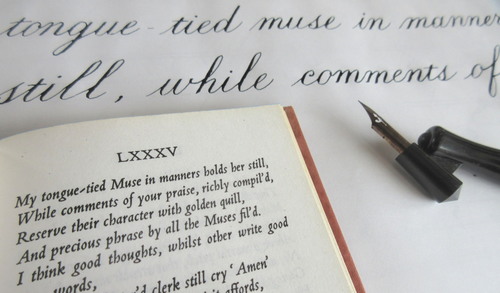 tongue-tied muse in manner
still, while comments of
LXXXV
My tongue-tied Muse in manners holds her still,
While comments of your praise, richly compil'd,
Reserve their character with golden quill,
And precious phrase by all the Muses fil'd.
I think good thoughts, whilst other write good
words,
'd clerk still cry 'Amen'
affords,